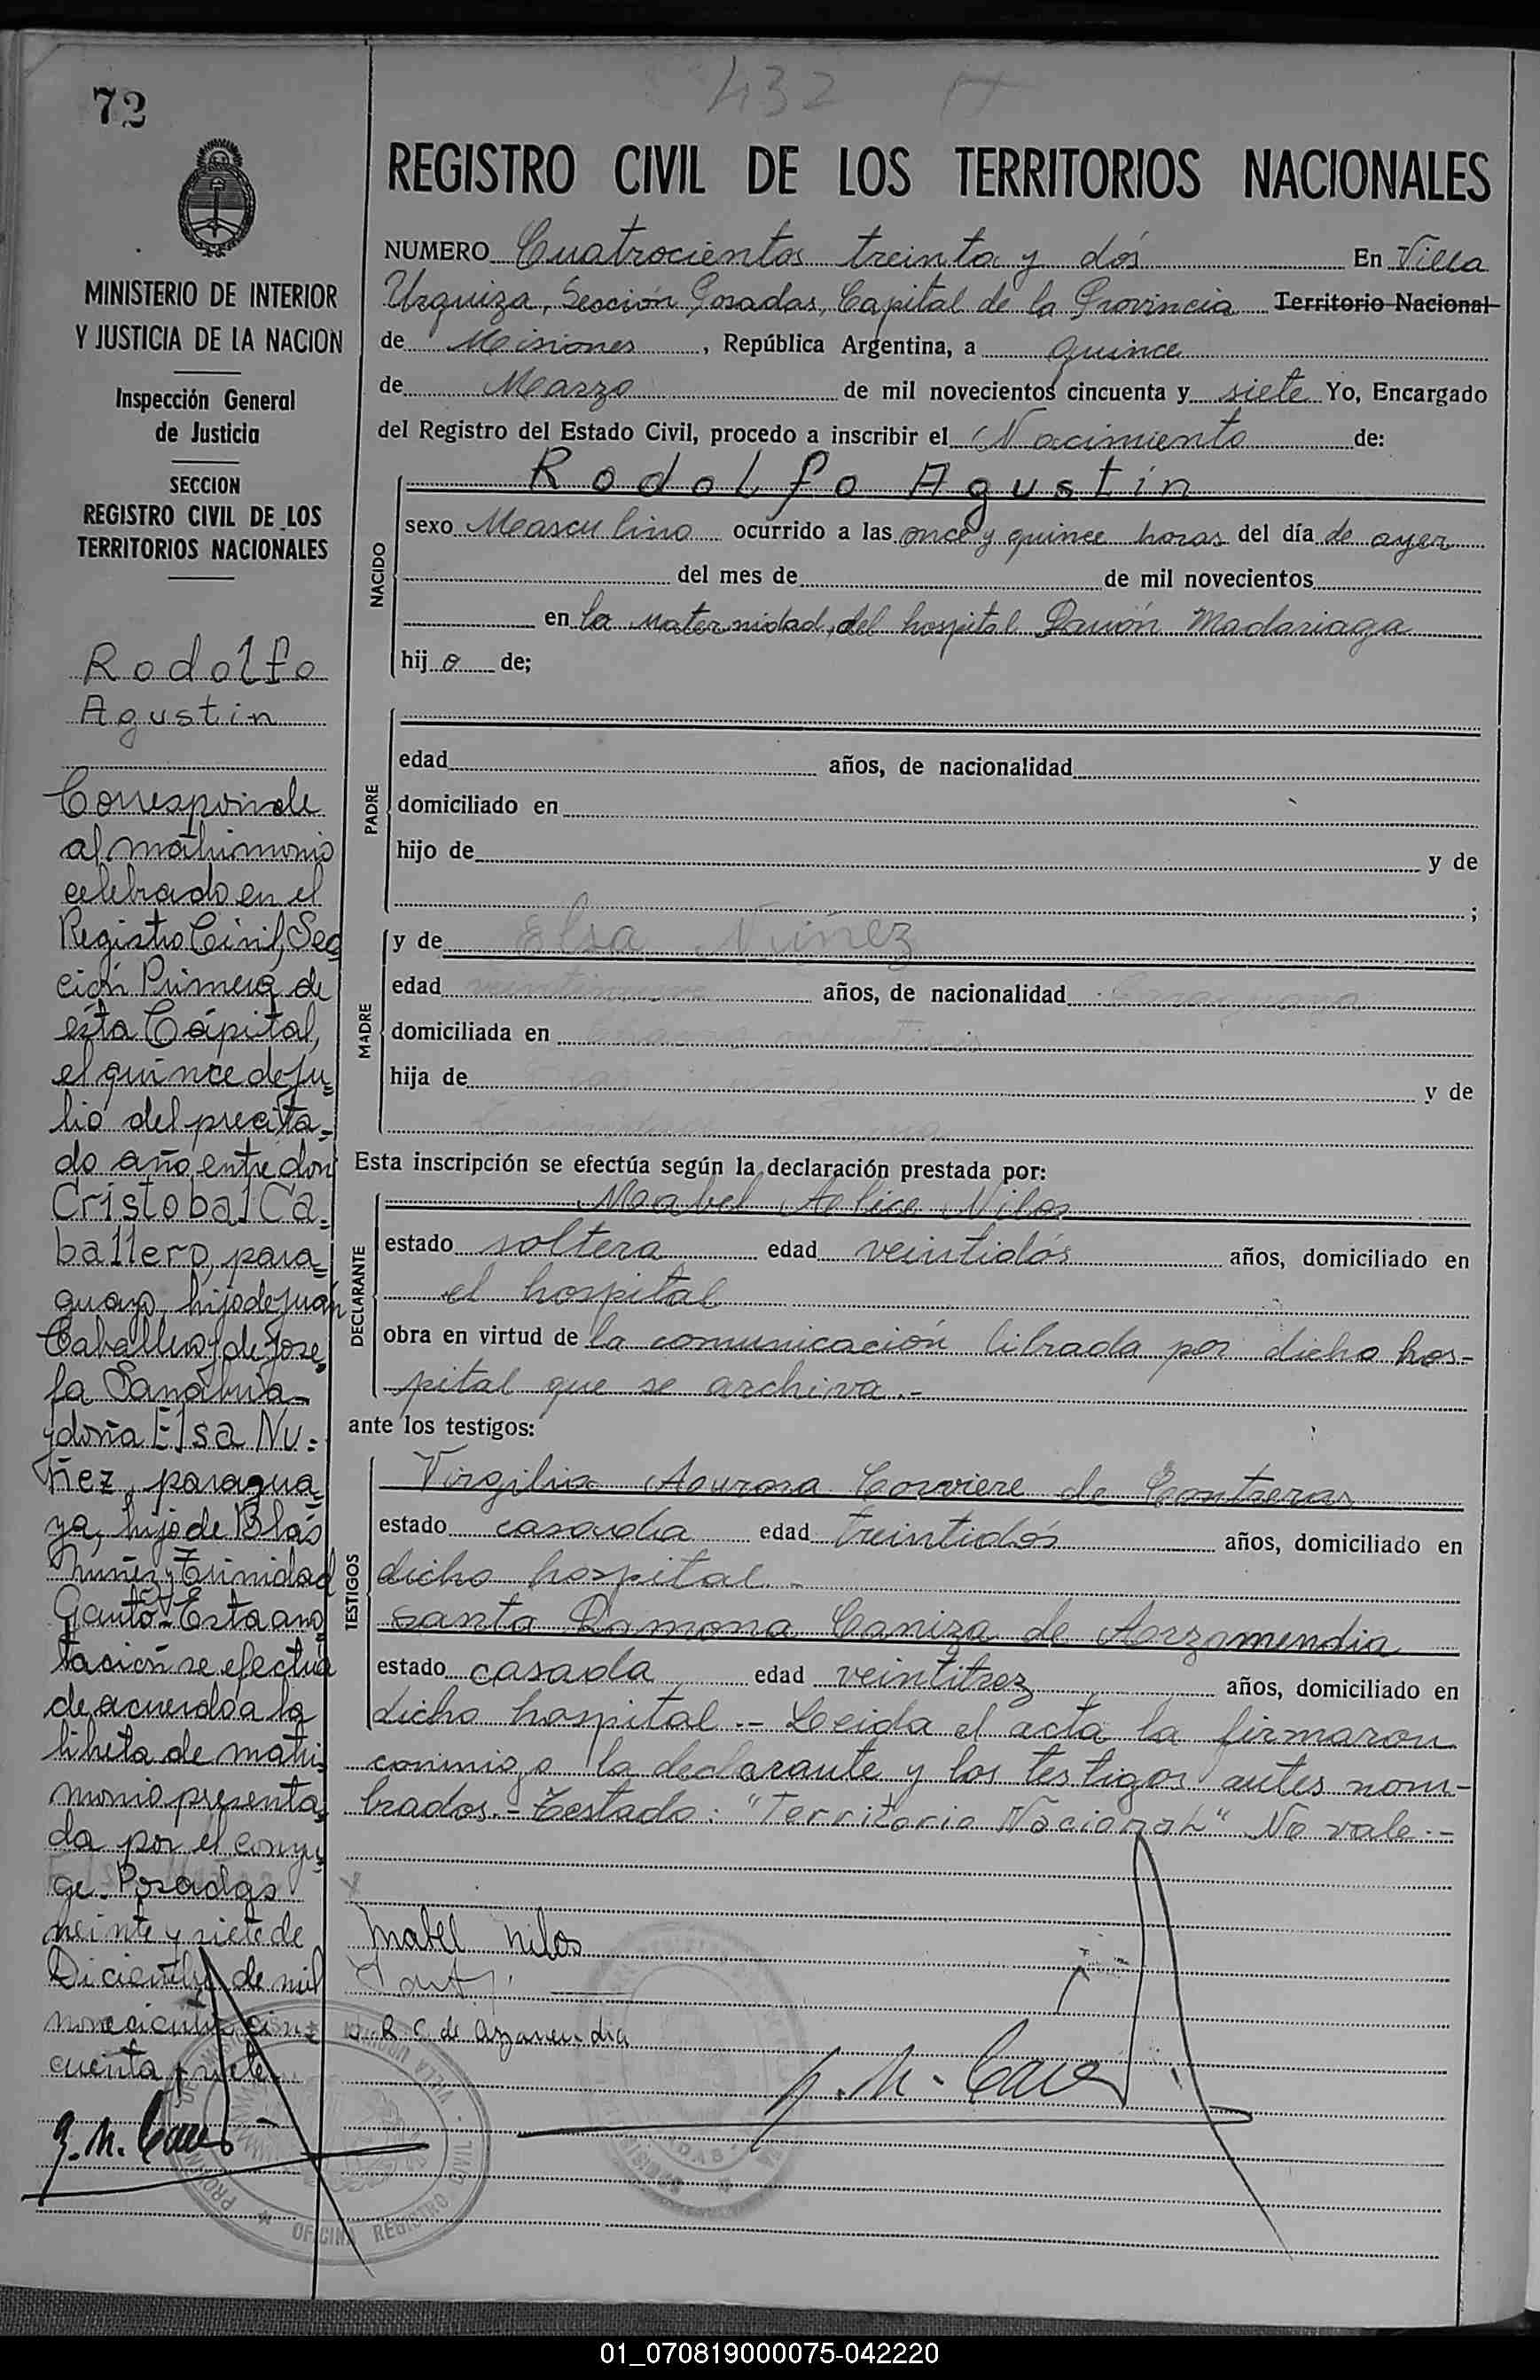 432
72
MINISTERIO DE INTERIOR
Y JUSTICIA DE LA NACION
Inspección General
de Justicia
SECCION
REGISTRO CIVIL DE LOS
TERRITORIOS NACIONALES
Rodolfo
Agustin
Corresponde
al matrimonio
celebrado en el
Registro Civil, Sec
ción Primera de
esta Capital,
el quince de Ju=
lio del precita=
do año, entre don
Cristobal Ca=
ballero, para=
guayo, hijo de Juan
Caballero y de Jose=
fa Sanabria
y doña Elsa Nu=
ñez, paragua=
ya, hija de Blás
Nuñez y Trinidad
Gauto. Esta ano
tación se efectua
de acuerdo a la
libreta de matri=
monio presenta=
da por el conyu=
ge. Posadas
veinte y siete de
Diciembre de mil
novecientos cin=
cuenta y siete.
REGISTRO CIVIL DE LOS TERRITORIOS NACIONALES
NUMERO Cuatrocientos treinta y dós En Villa
Urquiza, Sección Posadas, Capital de la Provincia Territorio Nacional
de Misiones, República Argentina, a quince
de Marzo de mil novecientos cincuenta y siete Yo, Encargado
del Registro del Estado Civil, procedo a inscribir el Nacimiento de:
NACIDO
Rodolfo Agustin
sexo Masculino ocurrido a las once y quince horas del día de ayer
del mes de de mil novecientos
en la Maternidad, del hospital Ramón Madariaga
hijo de;
PADRE
edad años, de nacionalidad
domiciliado en
hijo de y de
;
MADRE
y de Elsa Nuñez
edad años, de nacionalidad Paraguaya
domiciliada en
hija de y de
Esta inscripción se efectúa según la declaración prestada por:
DECLARANTE
Mabel Alice Nilos
estado soltera edad veintidós años, domiciliado en
el hospital
obra en virtud de la comunicación librada por dicho hos-
pital que se archiva.-
ante los testigos:
TESTIGOS
Virgilia Aurora Corviere de Contreras
estado casada edad treintidós años, domiciliado en
dicho hospital.-
Santa Ramona Caniza de Arzamendia
estado casada edad veintitrez años, domiciliado en
dicho hospital.- Leida el acta la firmaron
conmigo la declarante y los testigos antes nom-
brados.- Testado: "Territorio Nacional" No vale.-
Mabel Nilos
S. R. C. de Arzamendia
OFICINA REGISTRO CIVIL
VILLA URQUIZA
01_070819000075-042220